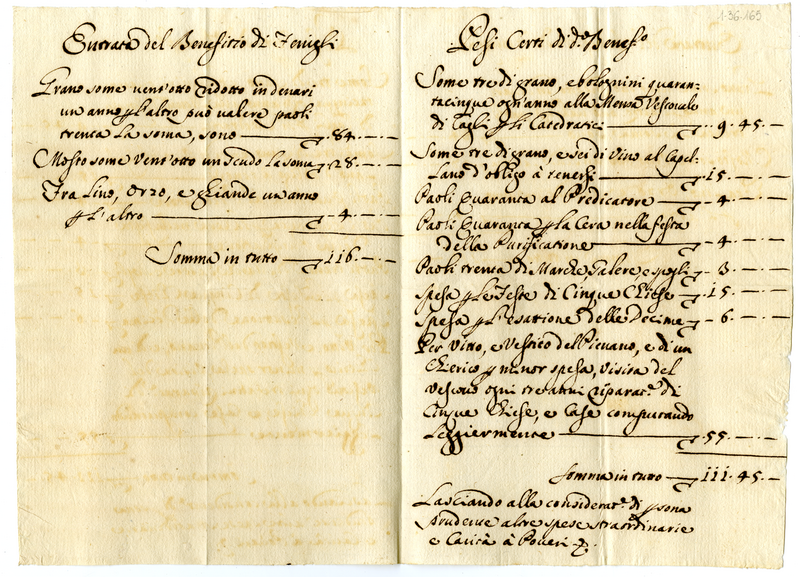 Entrata del Benefitio di Fenigli
Grano some vent'otto ridotto in denari
un anno p l'altro può valere paoli
trenta la soma, sono — 84 — —
Mosto some vent'otto un scudo la soma — 28 — —
Fra Lino, Orzo, e Ghiande un anno
p l'altro — 4 — —
Somma in tutto — 116 — —
1-36-169
Pesi Certi di d.o Benef.o
Some tre di grano, e bolognini quaran-
tacinque ogn'anno alla Mensa Vescovale
di Cagli p li Catedratici — 9. 45 —
Some tre di grano, e sei di Vino al Capel-
lano d'obligo à tenersi — 15 — —
Paoli Quaranta al Predicatore — 4 — —
Paoli Quaranta p la Cera nella festa
della Purificatione — 4 — —
Paoli trenta di Marche, Galere, e spogli — 3 — —
Spesa p le Feste di Cinque Chiese — 15 — —
Spesa p l'esattione delle Decime — 6 — —
Per Vitto, e Vestito del Pievano, e di un
Chierico p minor spesa, visita del
Vescovo ogni tre anni riparat.e di
Cinque Chiese, e Case computando
Leggiermente — 55 — —
Somma in tutto — 111. 45 —
Lasciando alla considerat.e di psona
prudente altre spese straordinarie
e Carità à Poveri